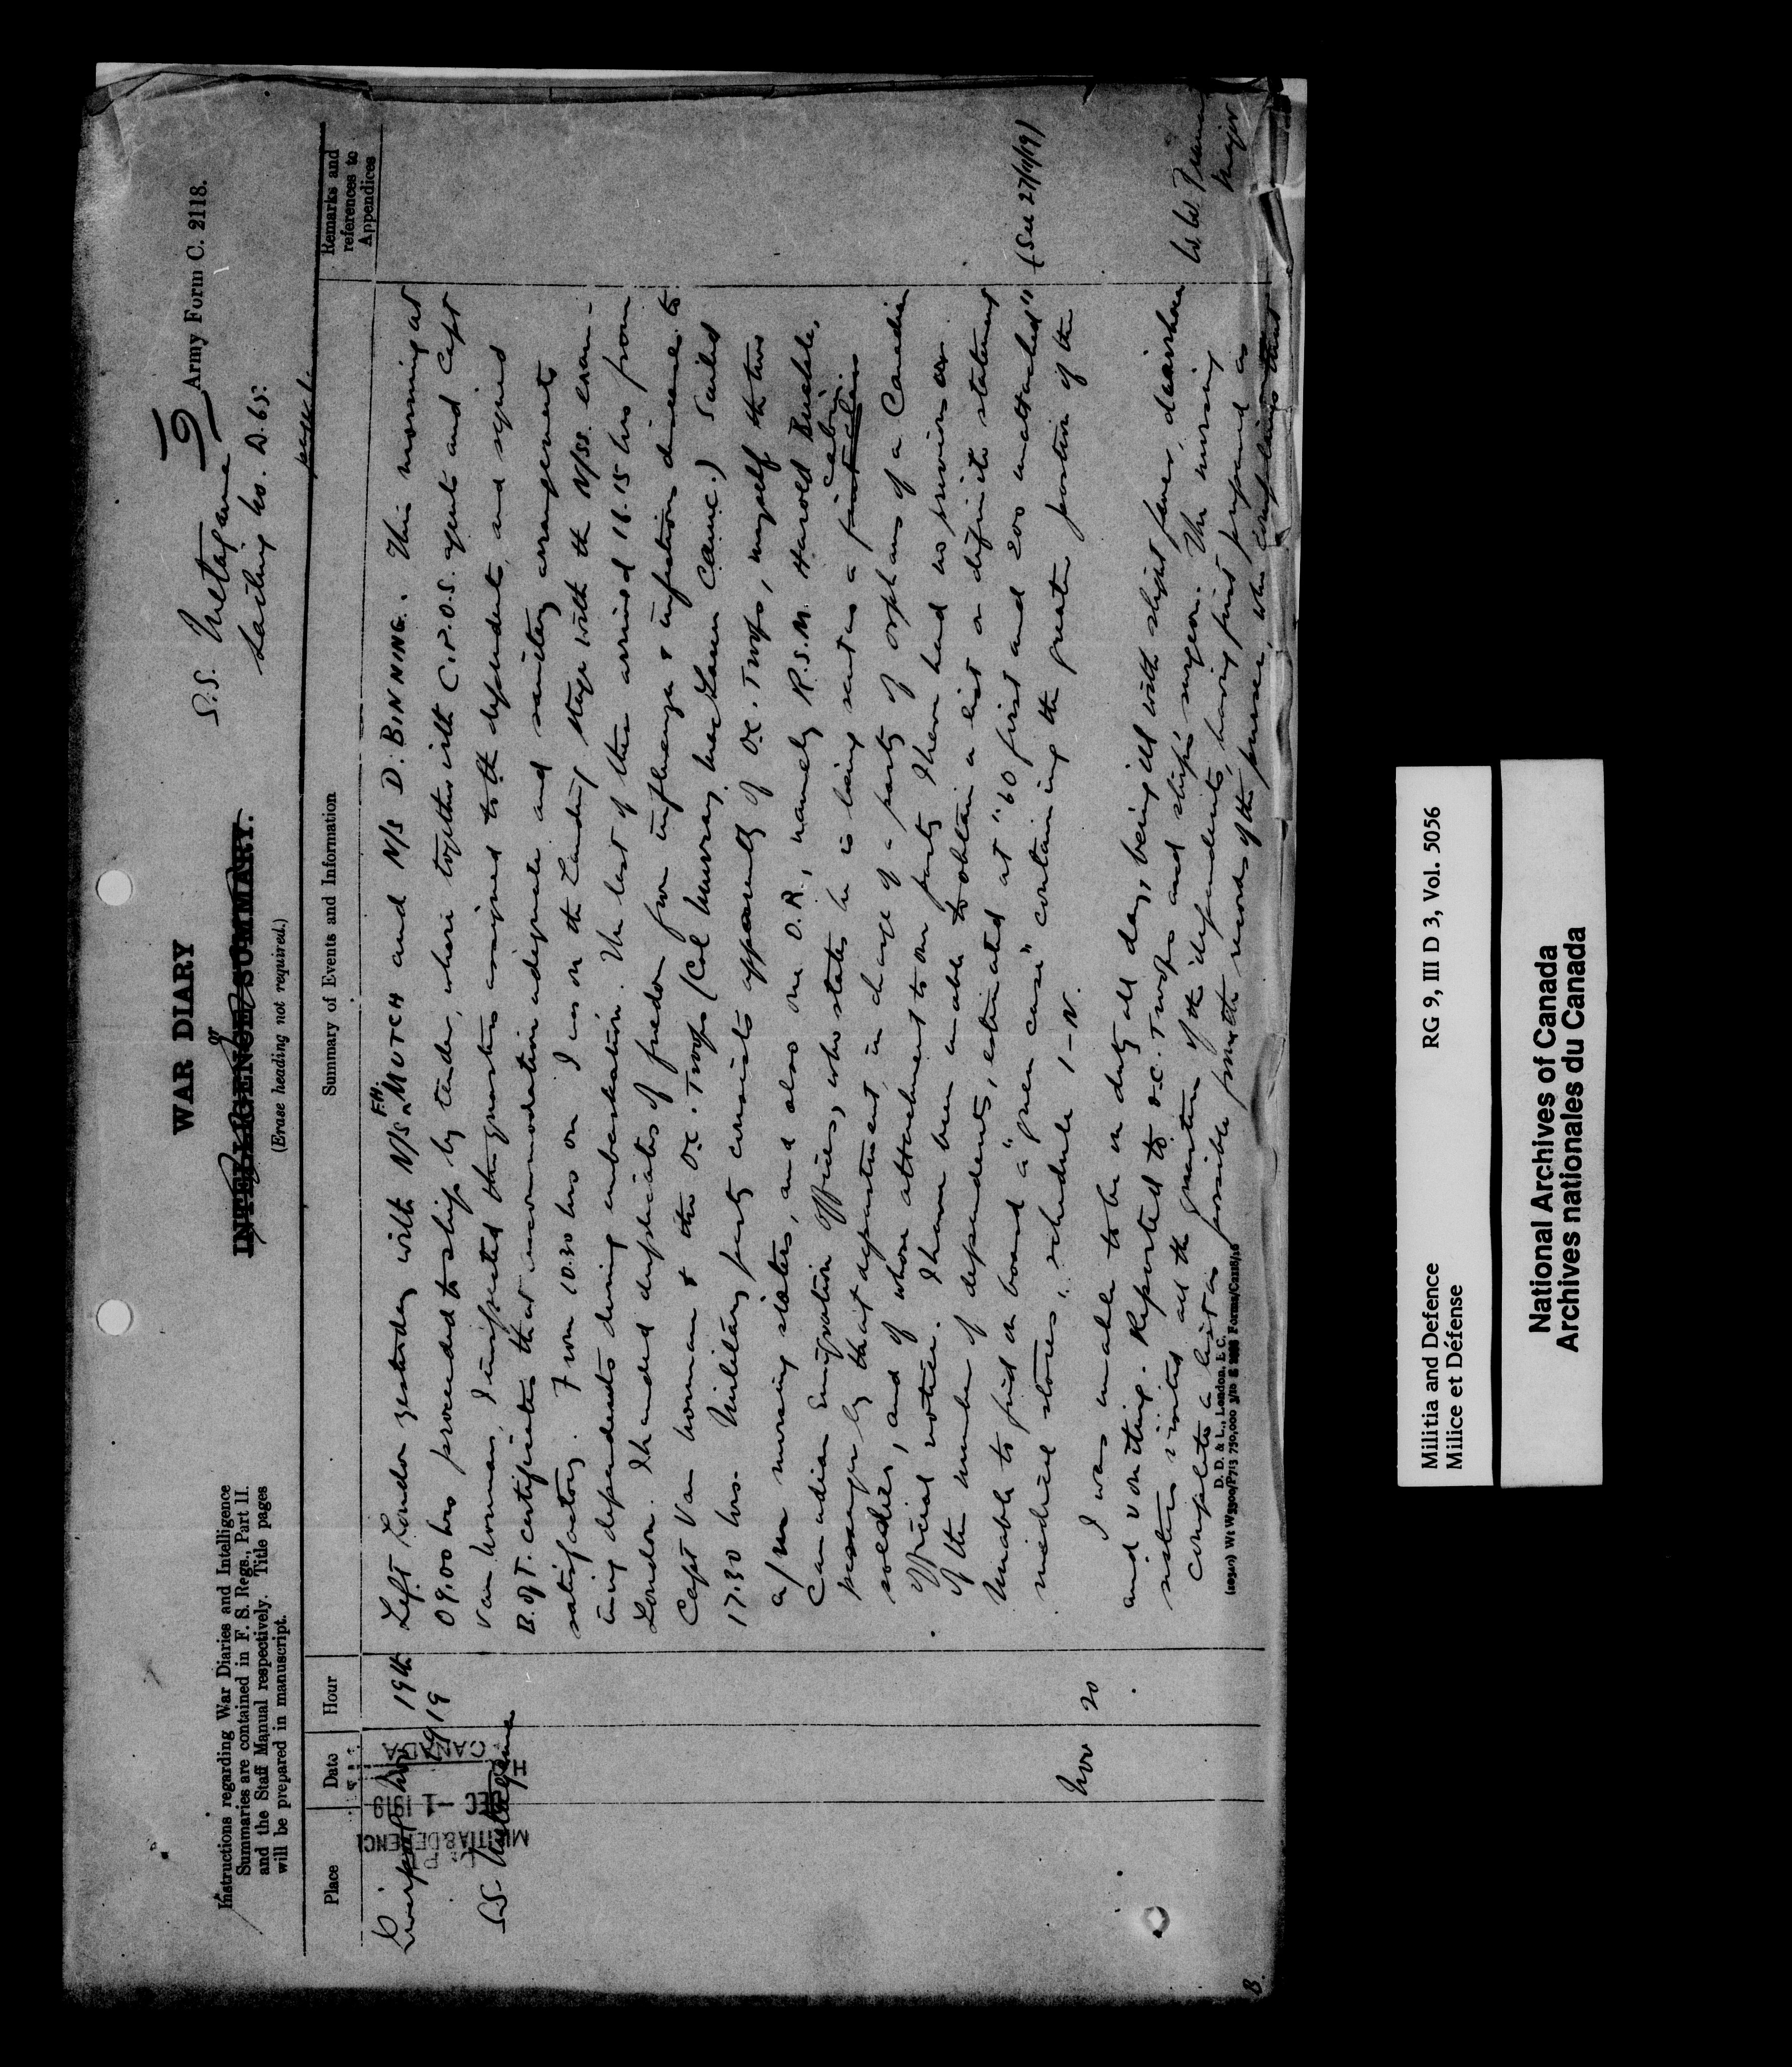 WAR DIARY
or
INTELLIGENCE SUMMARY.
(Erase heading not required.)
Instructions regarding War Diaries and Intelligence
Summaries are contained in F. S. Regs., Part II.
and the Staff Manual respectively. Title pages
will be prepared in manuscript.
S.S. Metagama
Sailing No. D. 65.
Army Form C. 2118.
page 1.
Place
Date
Hour
Summary of Events and Information
Remarks and
references to
Appendices
Liverpool Nov 19th
1919
S.S. Metagama
Left London yesterday with N/S F.H. MUTCH and N/S D. BINNING. This morning at
09.00 hrs proceeded to ship by tender, where together with C.P.O.S. agents and Capt
Van Norman, I inspected the quarters assigned to the dependents, and signed
B. of T. certificates that accommodation adequate and sanitary arrangements
satisfactory. From 10.30 hrs on I was on the Landing Stage with the N/SS. exam-
ining dependents during embarkation. The last of these arrived 16.15 hrs from
London. I handed duplicates of freedom from influenza & infectious disease to
Capt Van Norman & the O.C. Troops (Col Murray MacLaren CAMC.) Sailed
17.30 hrs. Military party consists apparently of O.C. Troops, myself the two
a/m nursing sisters, and also one O.R., namely R.S.M. Harold
Canadian Emigration Officer, who states he is being sent as a first class cabin
passenger by that department, in charge of a party of orphans of a Canadian
soldier, and of whose attachment to our party I have had no previous
official notice. I have been unable to obtain a list or definite statement
of the number of dependents, estimated at "60 first and 200 unattached"
Unable to find on board a "green case" containing the greater portion of the
medical stores, schedule 1-N.
(See 27/11/19)
Nov 20
I was unable to be on duty all day, being ill with slight fever, diarrhea
and vomiting. Reported to O.C. Troops and ship's surgeon. The nursing
sisters visited all the quarters of the dependents, having first prepared as
complete a list as possible from the records of the purser, who complains that
W.W.
Major
(1030) Wt W3500/P713 750,000 3/18 E 2688 Forms/C2118/16
D. D. & L., London, E C.
MILITIA & DEFENCE
DEC -1 1919
CANADA
Militia and Defence
Milice et Défense
RG 9, III D 3, Vol. 5056
National Archives of Canada
Archives nationales du Canada